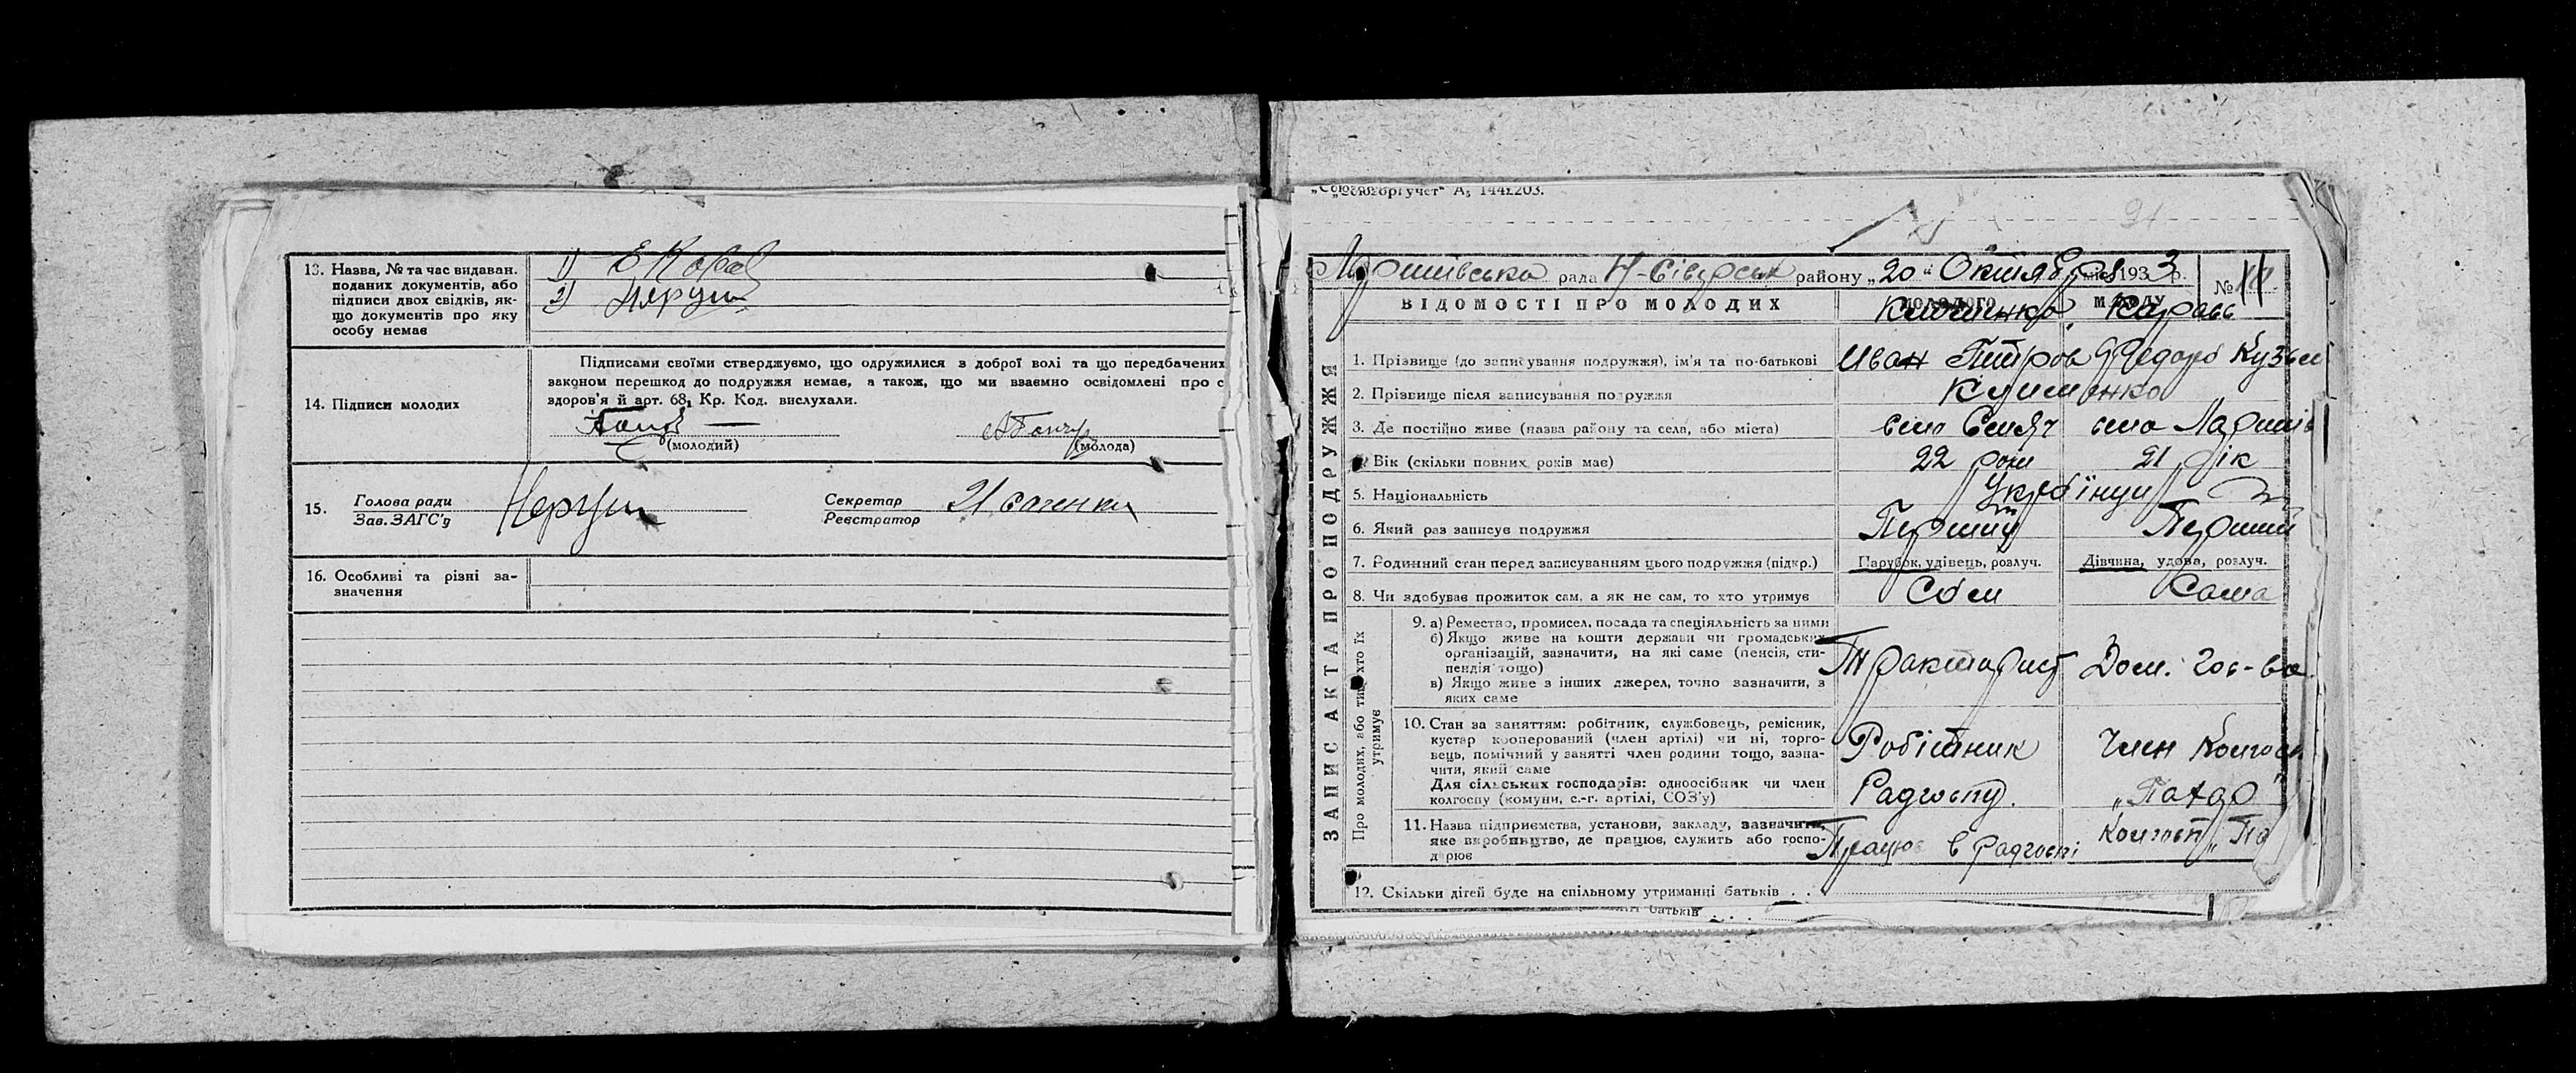 13. Назва, № та час видаван. поданих документів, або підписи двох свідків, якщо документів про яку особу немає
1)
2) Неруш
14. Підписи молодих
Підписами своїми стверджуємо, що одружилися з доброї волі та що передбачених
законом перешкод до подружжя немає, а також, що ми взаємно освідомлені про с
здоров'я й арт. 68₁ Кр. Код. вислухали.
(молодий) (молода)
15. Голова ради Неруш Секретар
Зав. ЗАГС'у Реєстратор
16. Особливі та різні зазначення
„Союзоргучет“ А₅ 1442203.
91
рада Н-Сіверськ району „20“ Октября міс. 1933 р. № 11
ВІДОМОСТІ ПРО МОЛОДИХ МОЛОДОГО МОЛОДУ
Клименко Карась
ЗАПИС АКТА ПРО ПОДРУЖЖЯ
1. Прізвище (до записування подружжя), ім'я та по-батькові Иван Петров Федора Кузьм
2. Прізвище після записування подружжя Клименко
3. Де постійно живе (назва району та села, або міста) село Смяч село Ларинів
4. Вік (скільки повних років має) 22 роки 21 рік
5. Національність Українці
6. Який раз записує подружжя Перший Перший
7. Родинний стан перед записуванням цього подружжя (підкр.) Парубок, удівець, розлуч. Дівчина, удова, розлуч.
8. Чи здобуває прожиток сам, а як не сам, то хто утримує Сам Сама
Про молодих, або тих, хто їх утримує
9. а) Ремество, промисел, посада та спеціяльність за ними
б) Якщо живе на кошти держави чи громадських
організацій, зазначити, на які саме (пенсія, сти-
пендія тощо) Тракторист Дом. гос-ва
в) Якщо живе з інших джерел, точно зазначити, з
яких саме
10. Стан за заняттям: робітник, службовець, ремісник,
кустар кооперований (член артілі) чи ні, торго-
вець, помічний у занятті член родини тощо, зазна- Робітник Член Колгосп
чити, який саме
Для сільських господарів: одноосібник чи член
колгоспу (комуни, с.-г. артілі, СОЗ'у) Радгоспу. „Пахар“
11. Назва підприємства, установи, закладу, зазначити,
яке виробництво, де працює, служить або госпо- Працює в Радгоспі Колгосп „Па
дарює
12. Скільки дітей буде на спільному утриманні батьків . .
батьків . . .